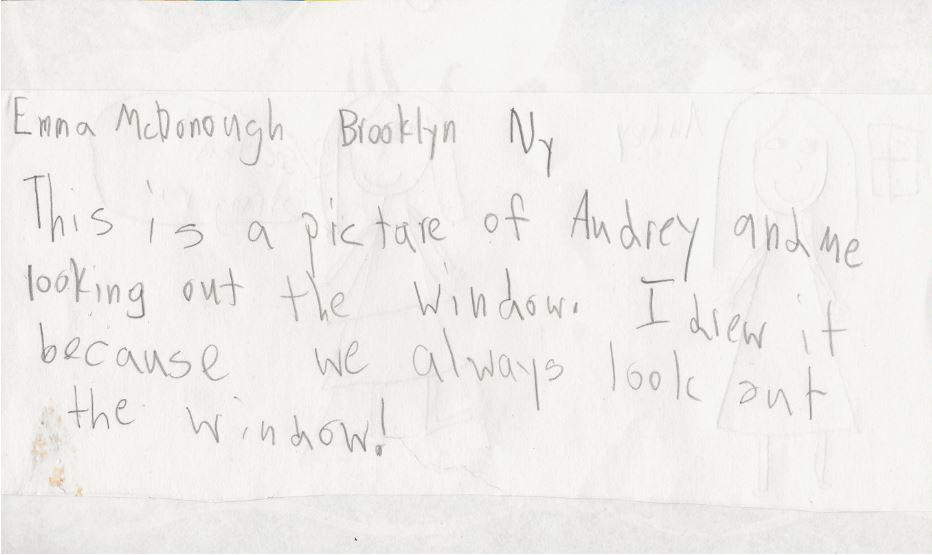 Emma McDonough Brooklyn Ny
This is a picture of Audrey and me
looking out the window. I drew it
because we always look out
the window!